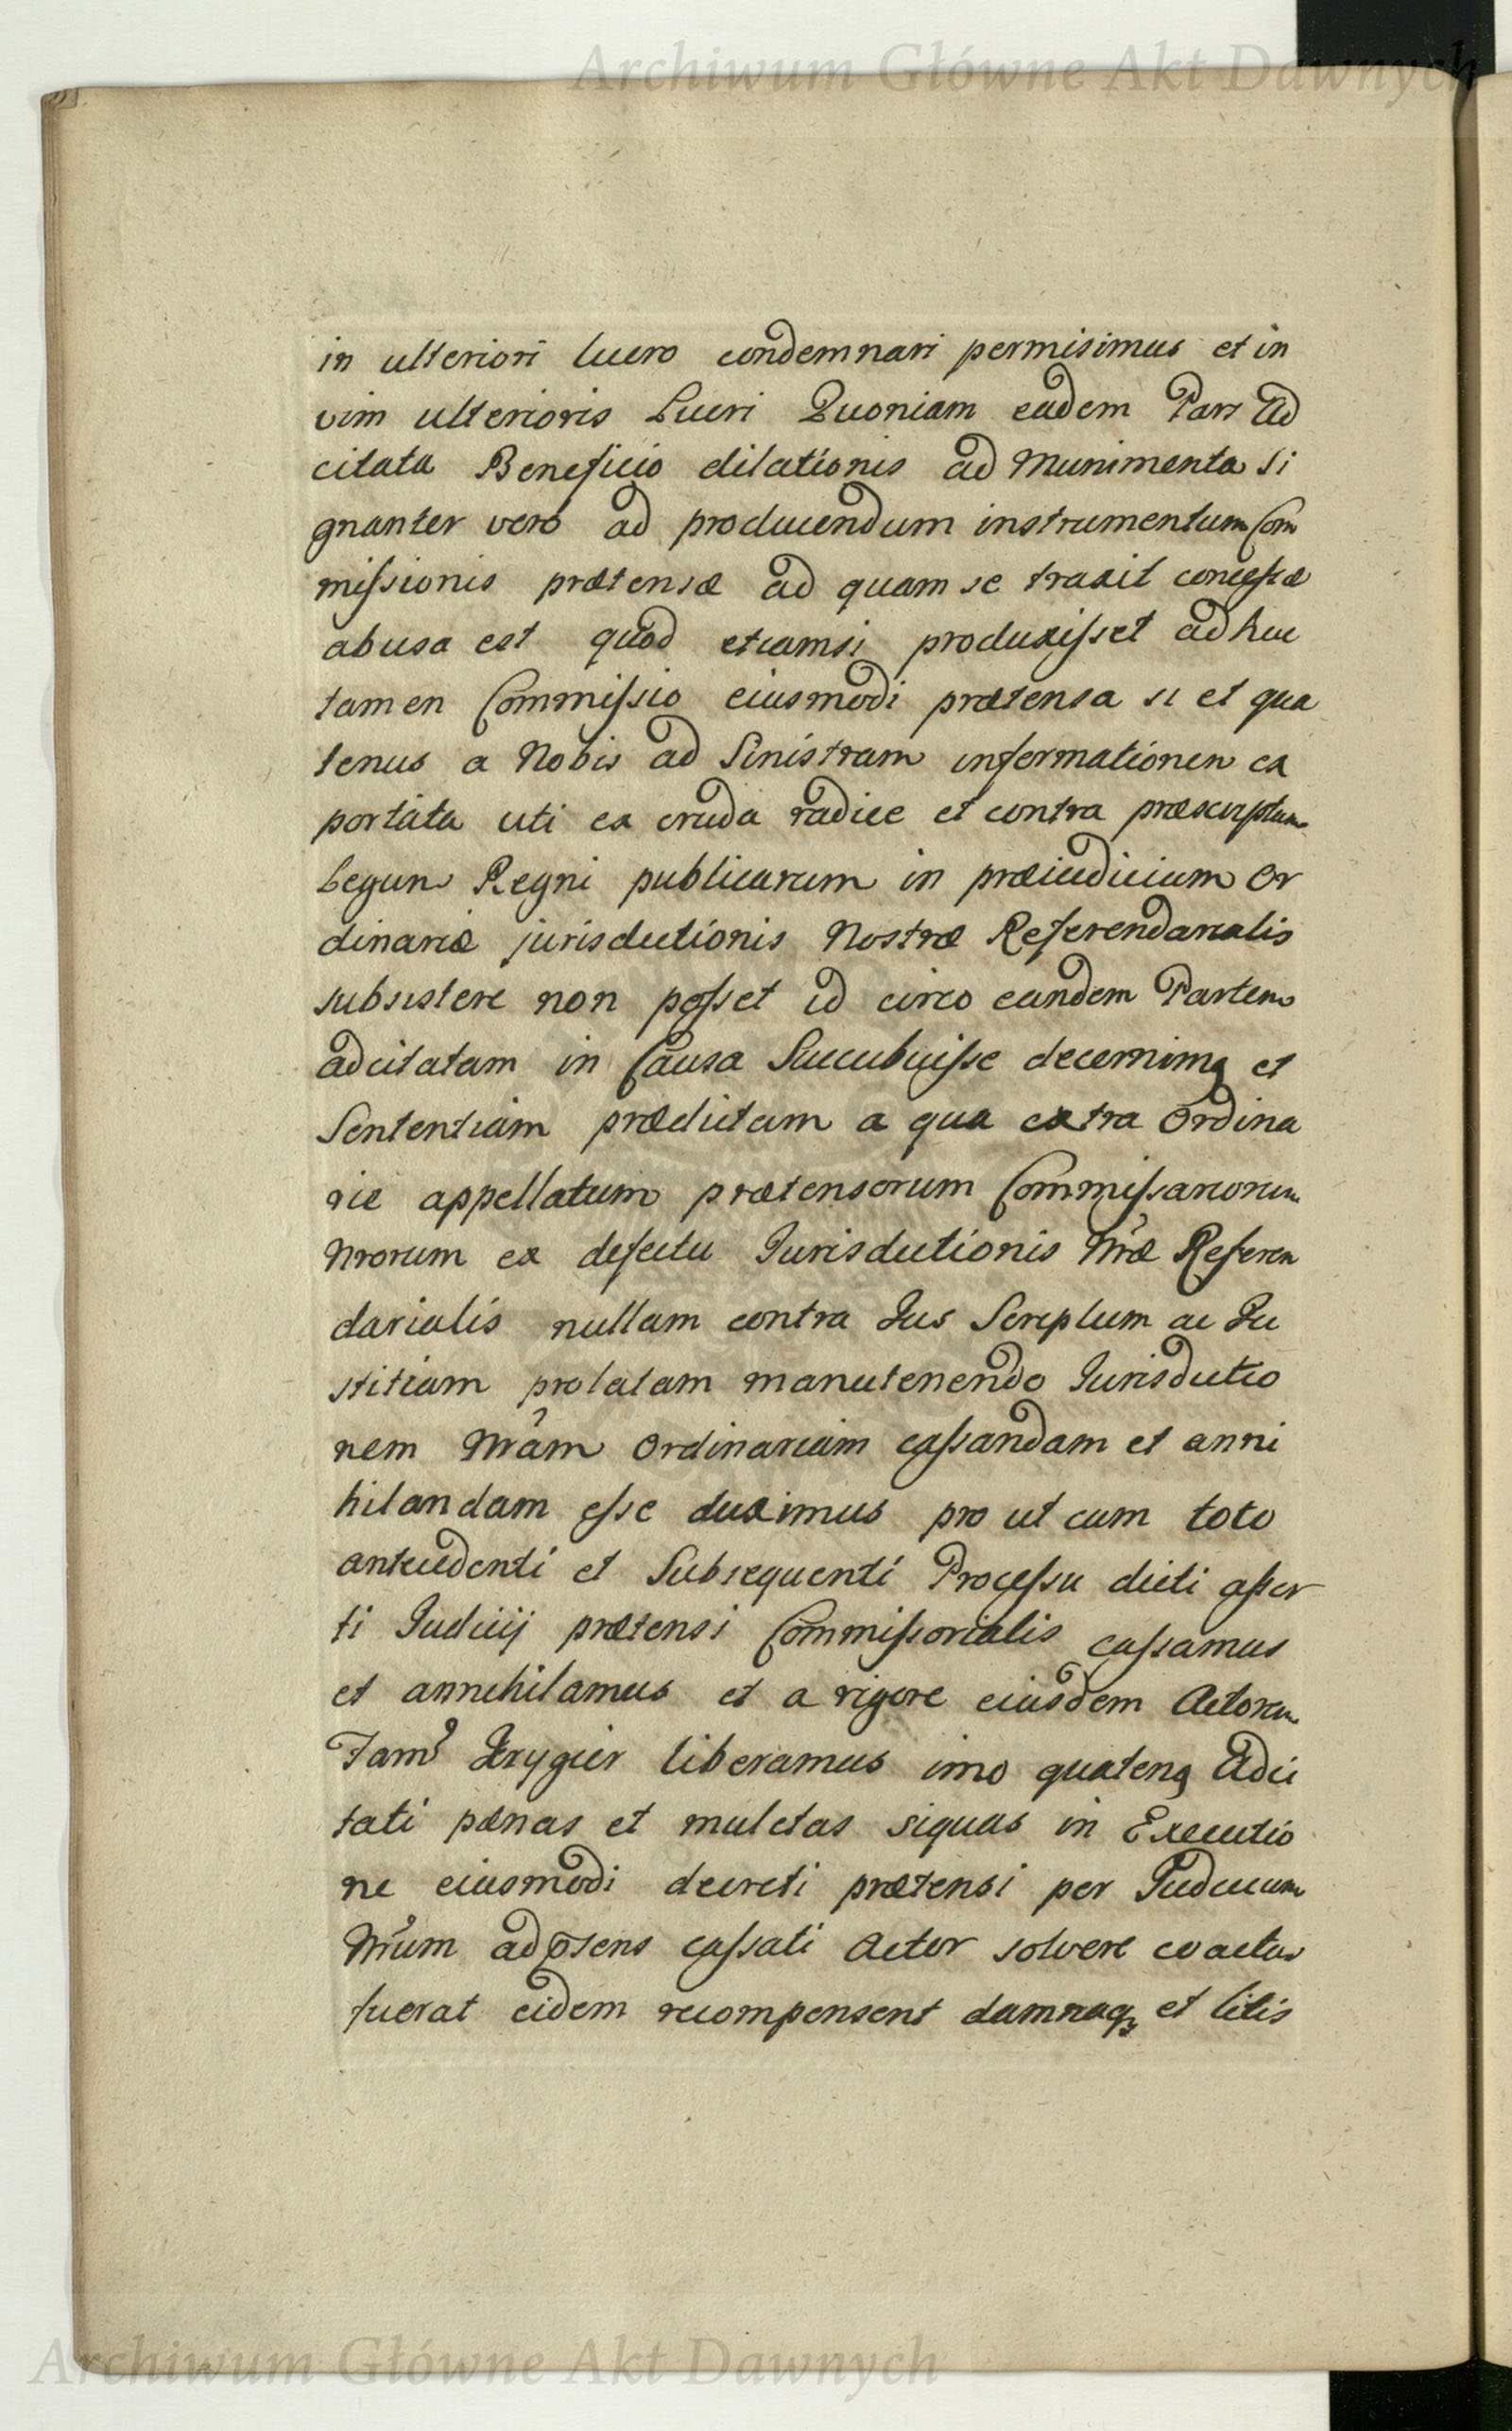 Archiwum Główne Akt Dawnych
in ulteriori lucro condemnari permisimus et in
vim ulterioris Lucri Quoniam eadem Pars Ad
citata Beneficio dilationis ad Munimenta Si
gnanter vero ad producendum instrumentum Com
missionis prætensæ ad quam se traxit concessæ
abusa est quod etiamsi produxisset ad huc
tamen Commissio eiusmodi prætensa si et qua
tenus a Nobis ad Sinistram informationem ex
portata uti ex cruda radice et contra præscriptum
Legum Regni publicarum in præiudicium Or
dinariæ jurisdictionis Nostræ Referendarialis
subsistere non posset id circo eandem Partem
adcitatam in Causa Succubuisse decernimq et
Sententiam prædictam a qua extra Ordina
rie appellatum prætensorum Commissariorum
Nrorum ex defectu Jurisdictionis Nræ Referen
darialis nullam contra Jus Scriptum ac Ju
stitiam prolatam manutenendo Jurisdictio
nem Nram Ordinariam cassandam et anni
hilandam esse duximus pro ut cum toto
antecedenti et Subsequenti Processu dicti asser
ti Judicij prætensi Commissorialis cassamus
et annihilamus et a rigore eiusdem Actorem
Fam Krygier liberamus imo quatenq Adci
tati pænas et mulctas siquas in Executio
ne eiusmodi decreti prætensi per Judicium
Nrum ad psens cassati Actor solvere coactus
fuerat eidem recompensent damnaq et litis
Archiwum Główne Akt Dawnych